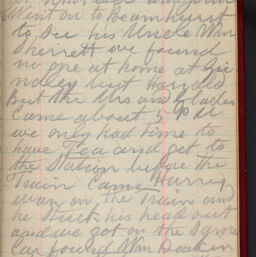 went on to Beamhurst
to see his Uncle Wm
Sherratt we found
no one at home at
but Harold
But the Mrs and Gladys
Came about 5 P M
we only had time to
have Tea and get to
the Station before the
Train Came Harry
was on the Train and
he stuck his head out
and we got on the same
Car found Wm Deakin